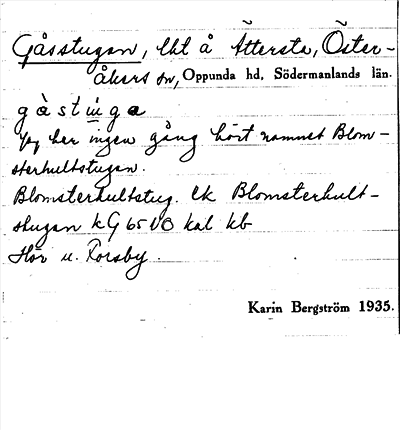 Gåsstugan, lht å Ättersta, Öster-
åkers sn, Oppunda hd, Södermanlands län.
gàstuga
Jag har ingen gång hört namnet Blom-
sterhultstugan.
Blomsterhultstug. lk Blomsterhult-
stugan kG 65 VO kal kb
Hör u. Forsby.
Karin Bergström 1935.